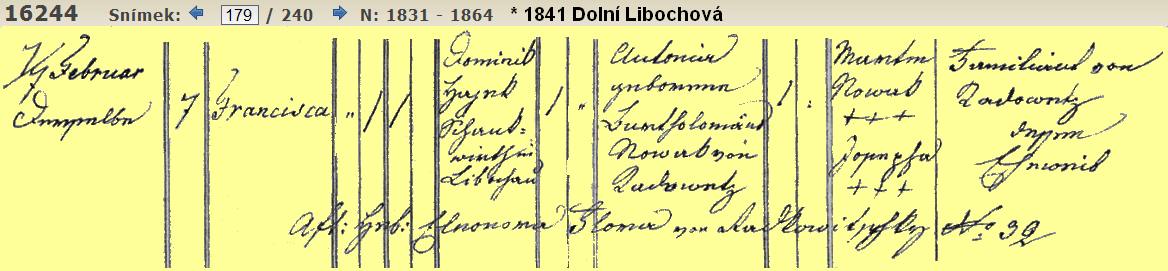 16244 Snímek: 179 / 240 N: 1831 - 1864 * 1841 Dolní Libochová
Februar
7
Francisca
"
/
/
Dominik
Hajek
Schank-
wirth in
Libochau
1
"
Antonia
geborene
Bartholomäus
Nowak von
Radowetz
1
Martin
Nowak
+++
Josepha
+++
Familiant von
Radowetz
dessen
Eheweib
Heb: Eleonora von No 39